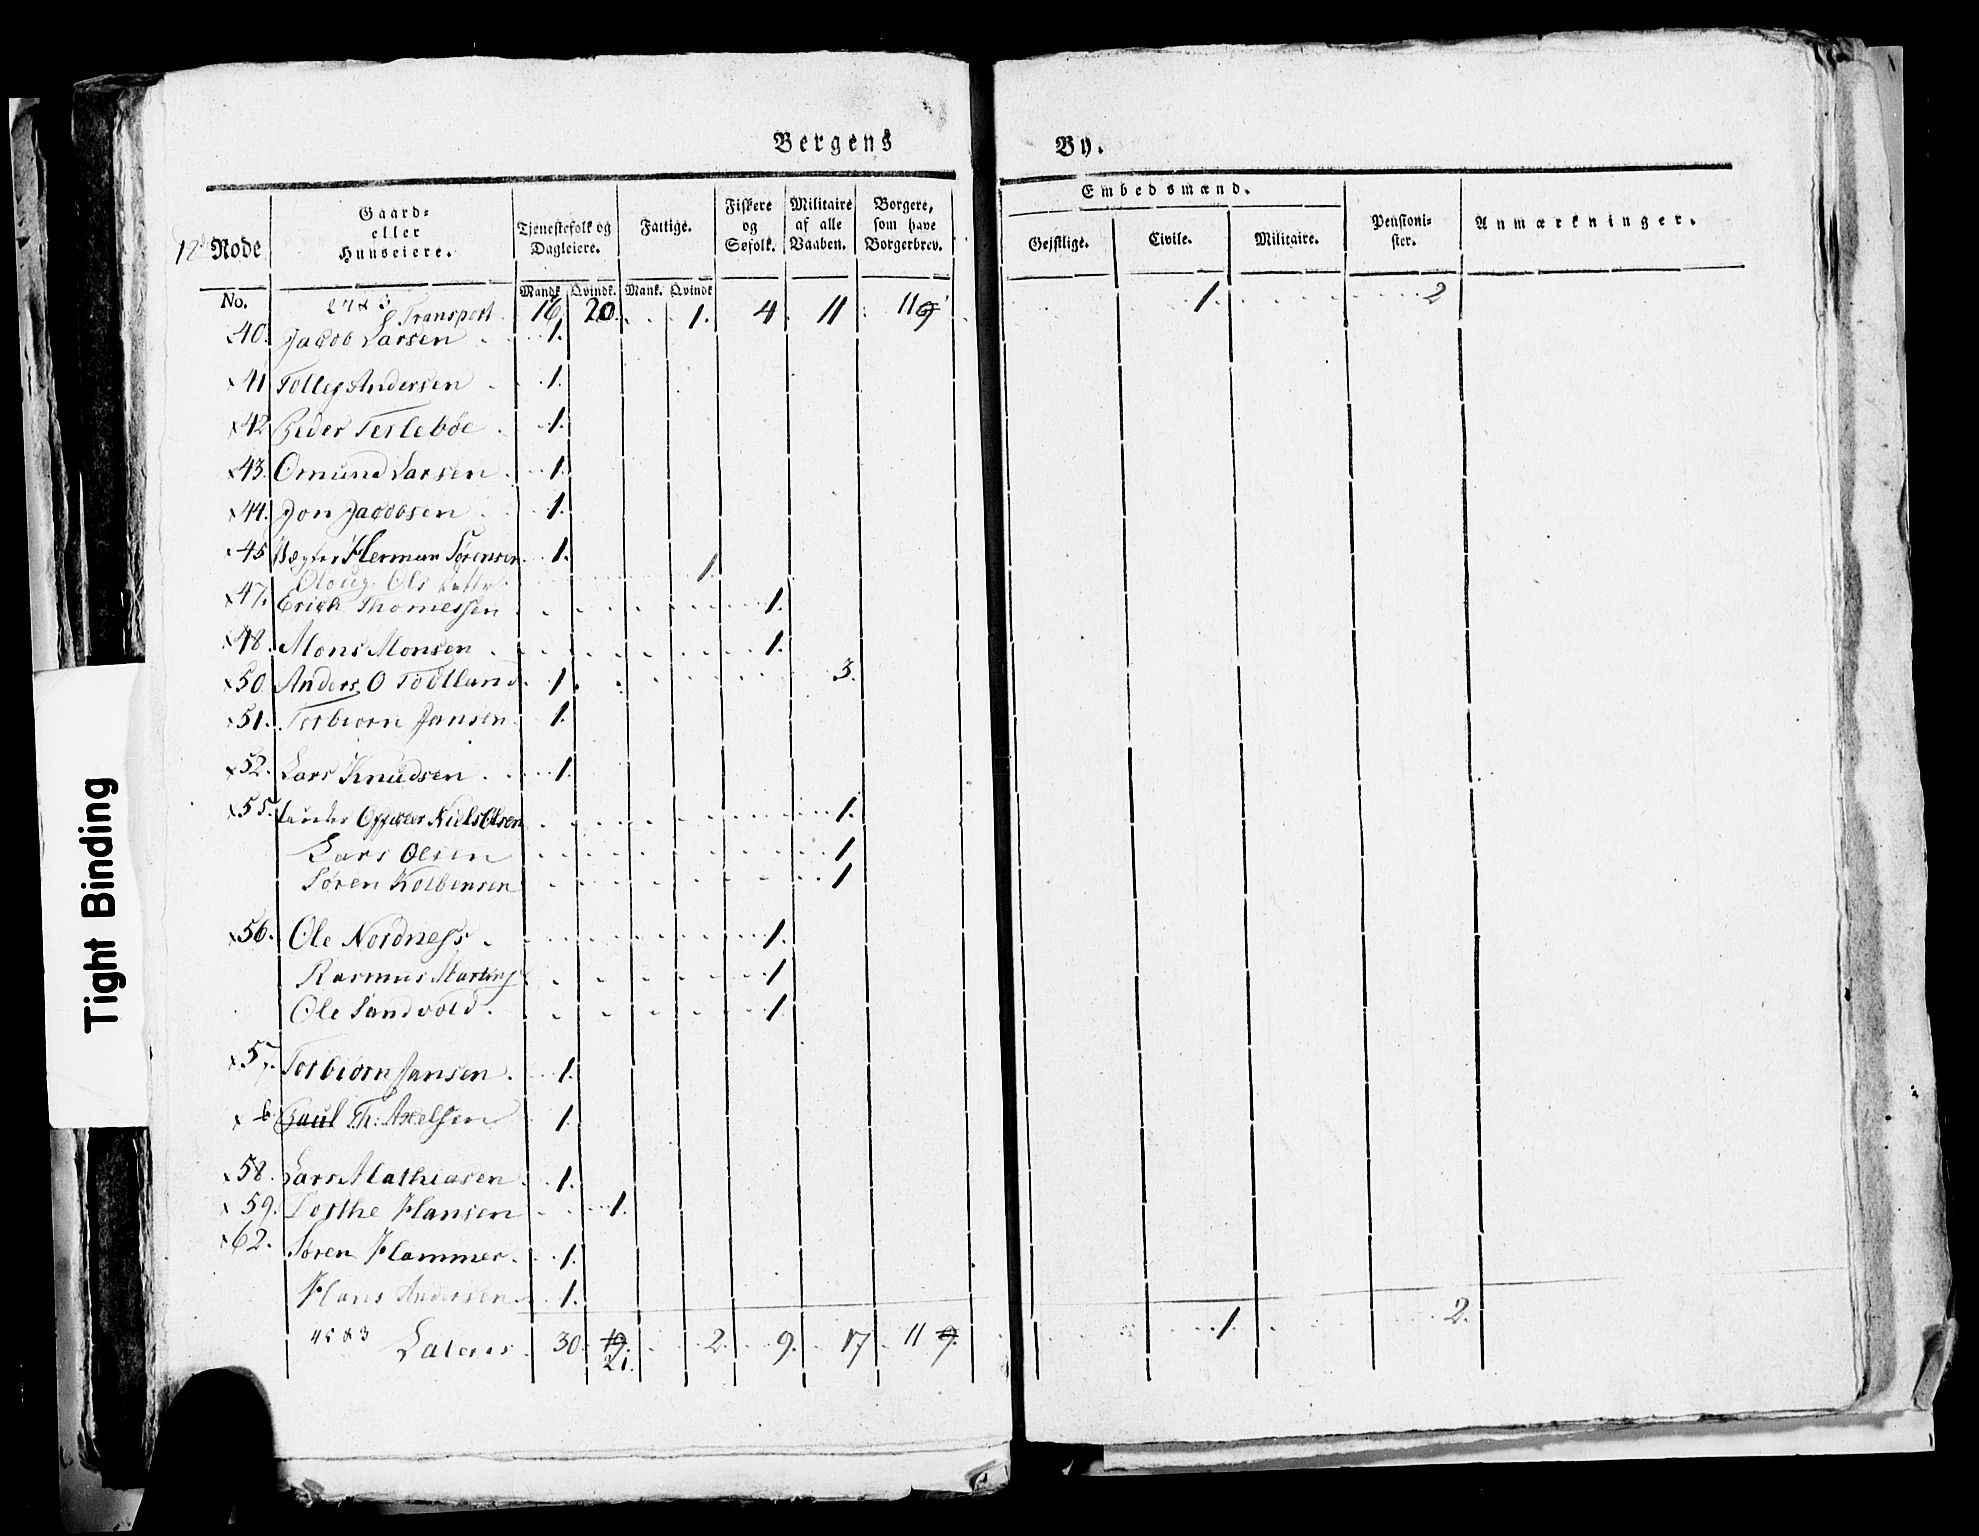 Bergens By.
12 Rode
No.
Gaard-
eller
Huuseiere.
Tjenestefolk og
Dagleiere.
Mandk. Qvindk.
Fattige.
Mank. Qvindk
Fiskere
og
Søfolk.
Militaire
af alle
Vaaben.
Borgere,
som have
Borgerbrev.
Embedsmænd.
Gejstlige. Civile. Militaire.
Pensioni-
ster.
Anmærkninger.
Transport 16. 20. 1. 4 11 11 9 1. 2
40. Jacob Larsen 1.
x41 Tollef Andersen 1.
x42 Peder Teslebøe 1.
x43. Omund Larsen 1.
x44. Jon Jacobsen 1.
x45 Vægter Herman Sørensen 1.
Ols 1.
x47. Erich Thomessen 1.
x48. Mons Monsen 1.
x50. Anders O Toëlland 1. 3.
x51. Torbiørn Jansen 1.
x52. Lars Knudsen 1.
x55. under Officer Niels Olsen 1.
Lars Olsen 1
Søren Kolbensen 1
x56. Ole Nordness 1.
Rasmus Martens 1
Ole Sandvold. 1.
x57. Torbiørn Jansen. 1.
x b. Paul Th: Axelsen 1.
x58. Lars Mathiasen 1.
x59. Dorthe Hansen 1.
x62. Søren Hammer. 1.
Hans Andersen 1.
Lateris 30. 19. 2. 9. 17 11 9. 1. 2.
21.
Tight Binding